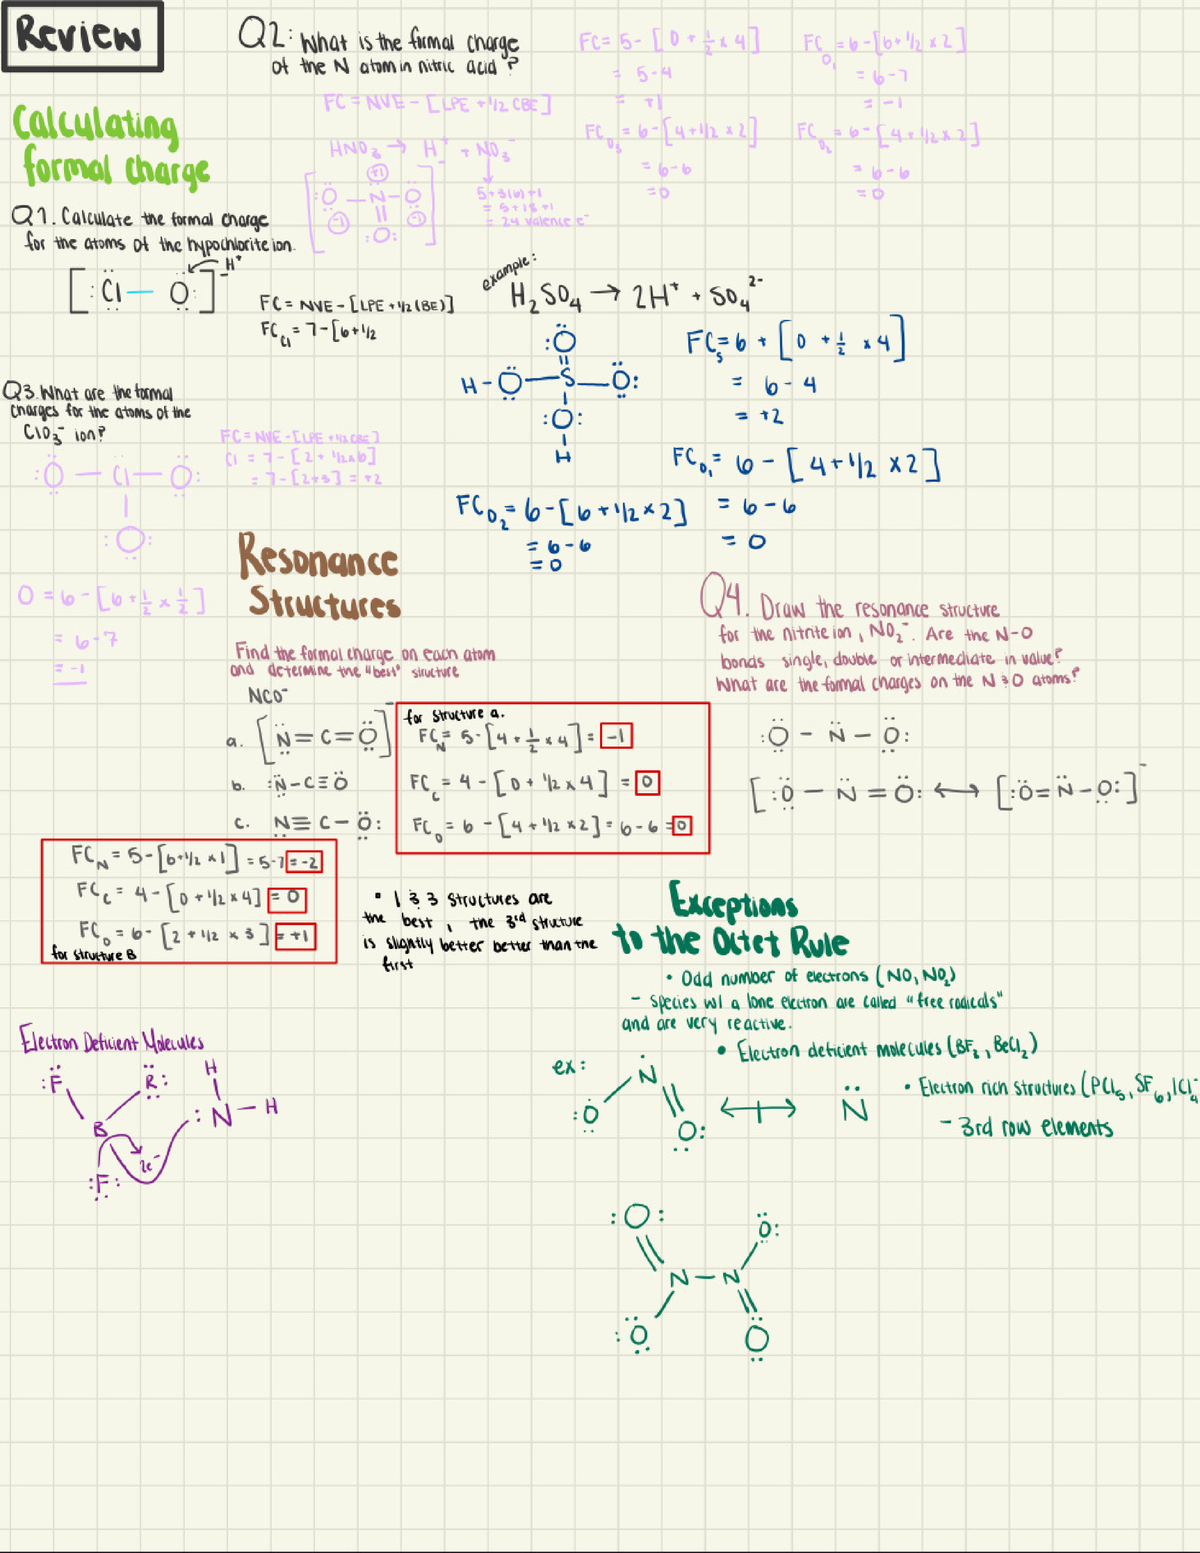 Review
Calculating
formal charge
Q1. Calculate the formal charge
for the atoms of the hypochlorite ion.
[:Cl — O:]⁻ H⁺
FC = NVE - [LPE + 1/2 (BE)]
FC_Cl = 7 - [6 + 1/2
Q2: What is the formal charge
of the N atom in nitric acid?
FC = NVE - [LPE + 1/2 CBE]
HNO₃ → H⁺ + NO₃⁻
+1
[:O — N — O
-1 || -1
:O:]
5 + 3(6) + 1
= 5 + 18 + 1
= 24 valence e⁻
FC = 5 - [0 + 1/2 x 4]
= 5 - 4
= +1
FC_O₁ = 6 - [6 + 1/2 x 2]
= 6 - 7
= -1
FC_O₃ = 6 - [4 + 1/2 x 2]
= 6 - 6
= 0
FC_O₂ = 6 - [4 + 1/2 x 2]
= 6 - 6
= 0
example:
H₂SO₄ → 2H⁺ + SO₄²⁻
:O
||
H - O — S — O:
:O:
H
FC_S = 6 + [0 + 1/2 x 4]
= 6 - 4
= +2
FC_O₁ = 6 - [4 + 1/2 x 2]
= 6 - 6
= 0
FC_O₂ = 6 - [6 + 1/2 x 2]
= 6 - 6
= 0
Q3. What are the formal
charges for the atoms of the
ClO₃⁻ ion?
:O — Cl — O:
|
:O:
FC = NVE - [LPE + 1/2 CBE]
Cl = 7 - [2 + 1/2 x 6]
= 7 - [2+3] = +2
O = 6 - [6 + 1/2 x 1/2]
= 6 - 7
= -1
Resonance
Structures
Find the formal charge on each atom
and determine the "best" structure
NCO⁻
a. [N = C = O]⁻
b. :N - C ≡ O
c. N ≡ C - O:
for structure a.
FC_N = 5 - [4 + 1/2 x 4] = -1
FC_C = 4 - [0 + 1/2 x 4] = 0
FC_O = 6 - [4 + 1/2 x 2] = 6 - 6 = 0
FC_N = 5 - [6 + 1/2 x 1] = 5 - 7 = -2
FC_C = 4 - [0 + 1/2 x 4] = 0
FC_O = 6 - [2 + 1/2 x 3] = +1
for structure B
• 1 & 3 structures are
the best, the 3rd structure
is slightly better better than the
first
Q4. Draw the resonance structure
for the nitrite ion, NO₂⁻. Are the N-O
bonds single, double or intermediate in value?
What are the formal charges on the N & O atoms?
:O - N - O:
[:O — N = O: ↔ [:O = N - O:]⁻
Exceptions
to the Octet Rule
• Odd number of electrons (NO, NO₂)
- species w/ a lone electron are called "free radicals"
and are very reactive.
• Electron deficient molecules (BF₃, BeCl₂)
• Electron rich structures (PCl₅, SF₆, ICl₄⁻
- 3rd row elements
ex:
N
:O O:
N
:O: O:
N — N
:O O
Electron Deficient Molecules
:F R: H
B :N — H
2e⁻
:F: